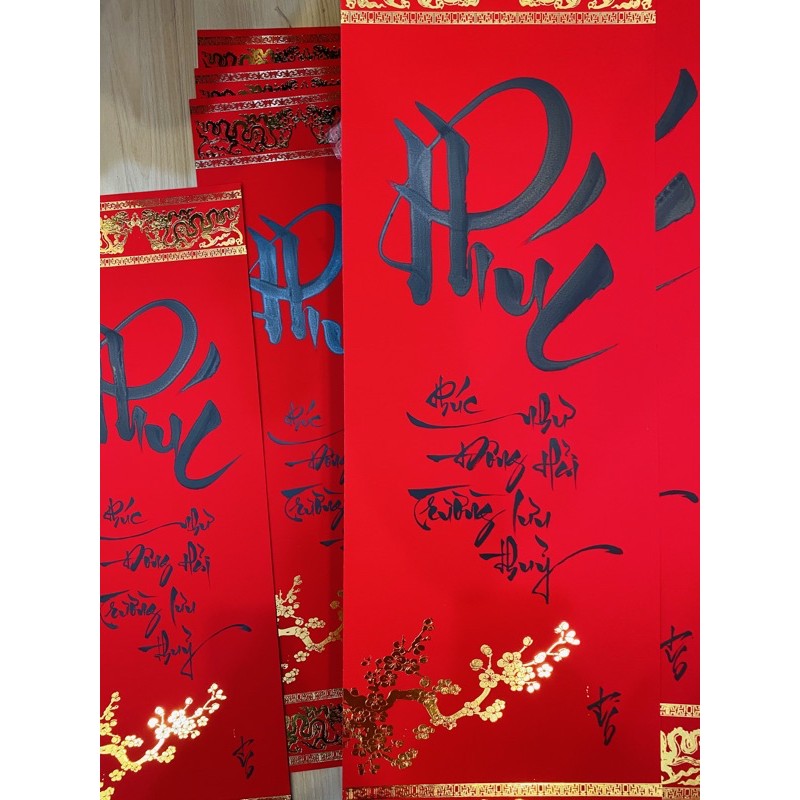 Phúc
Phúc như
Đông Hải
Trường lưu
thuỷ
Phúc
Phúc như
Đông Hải
Trường lưu
thuỷ
Phúc
Đông
Trường